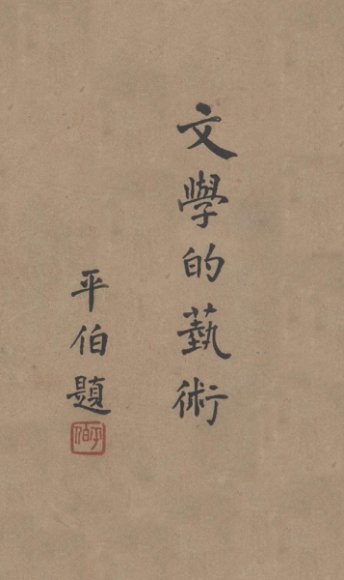 文學的藝術
平伯題
平伯